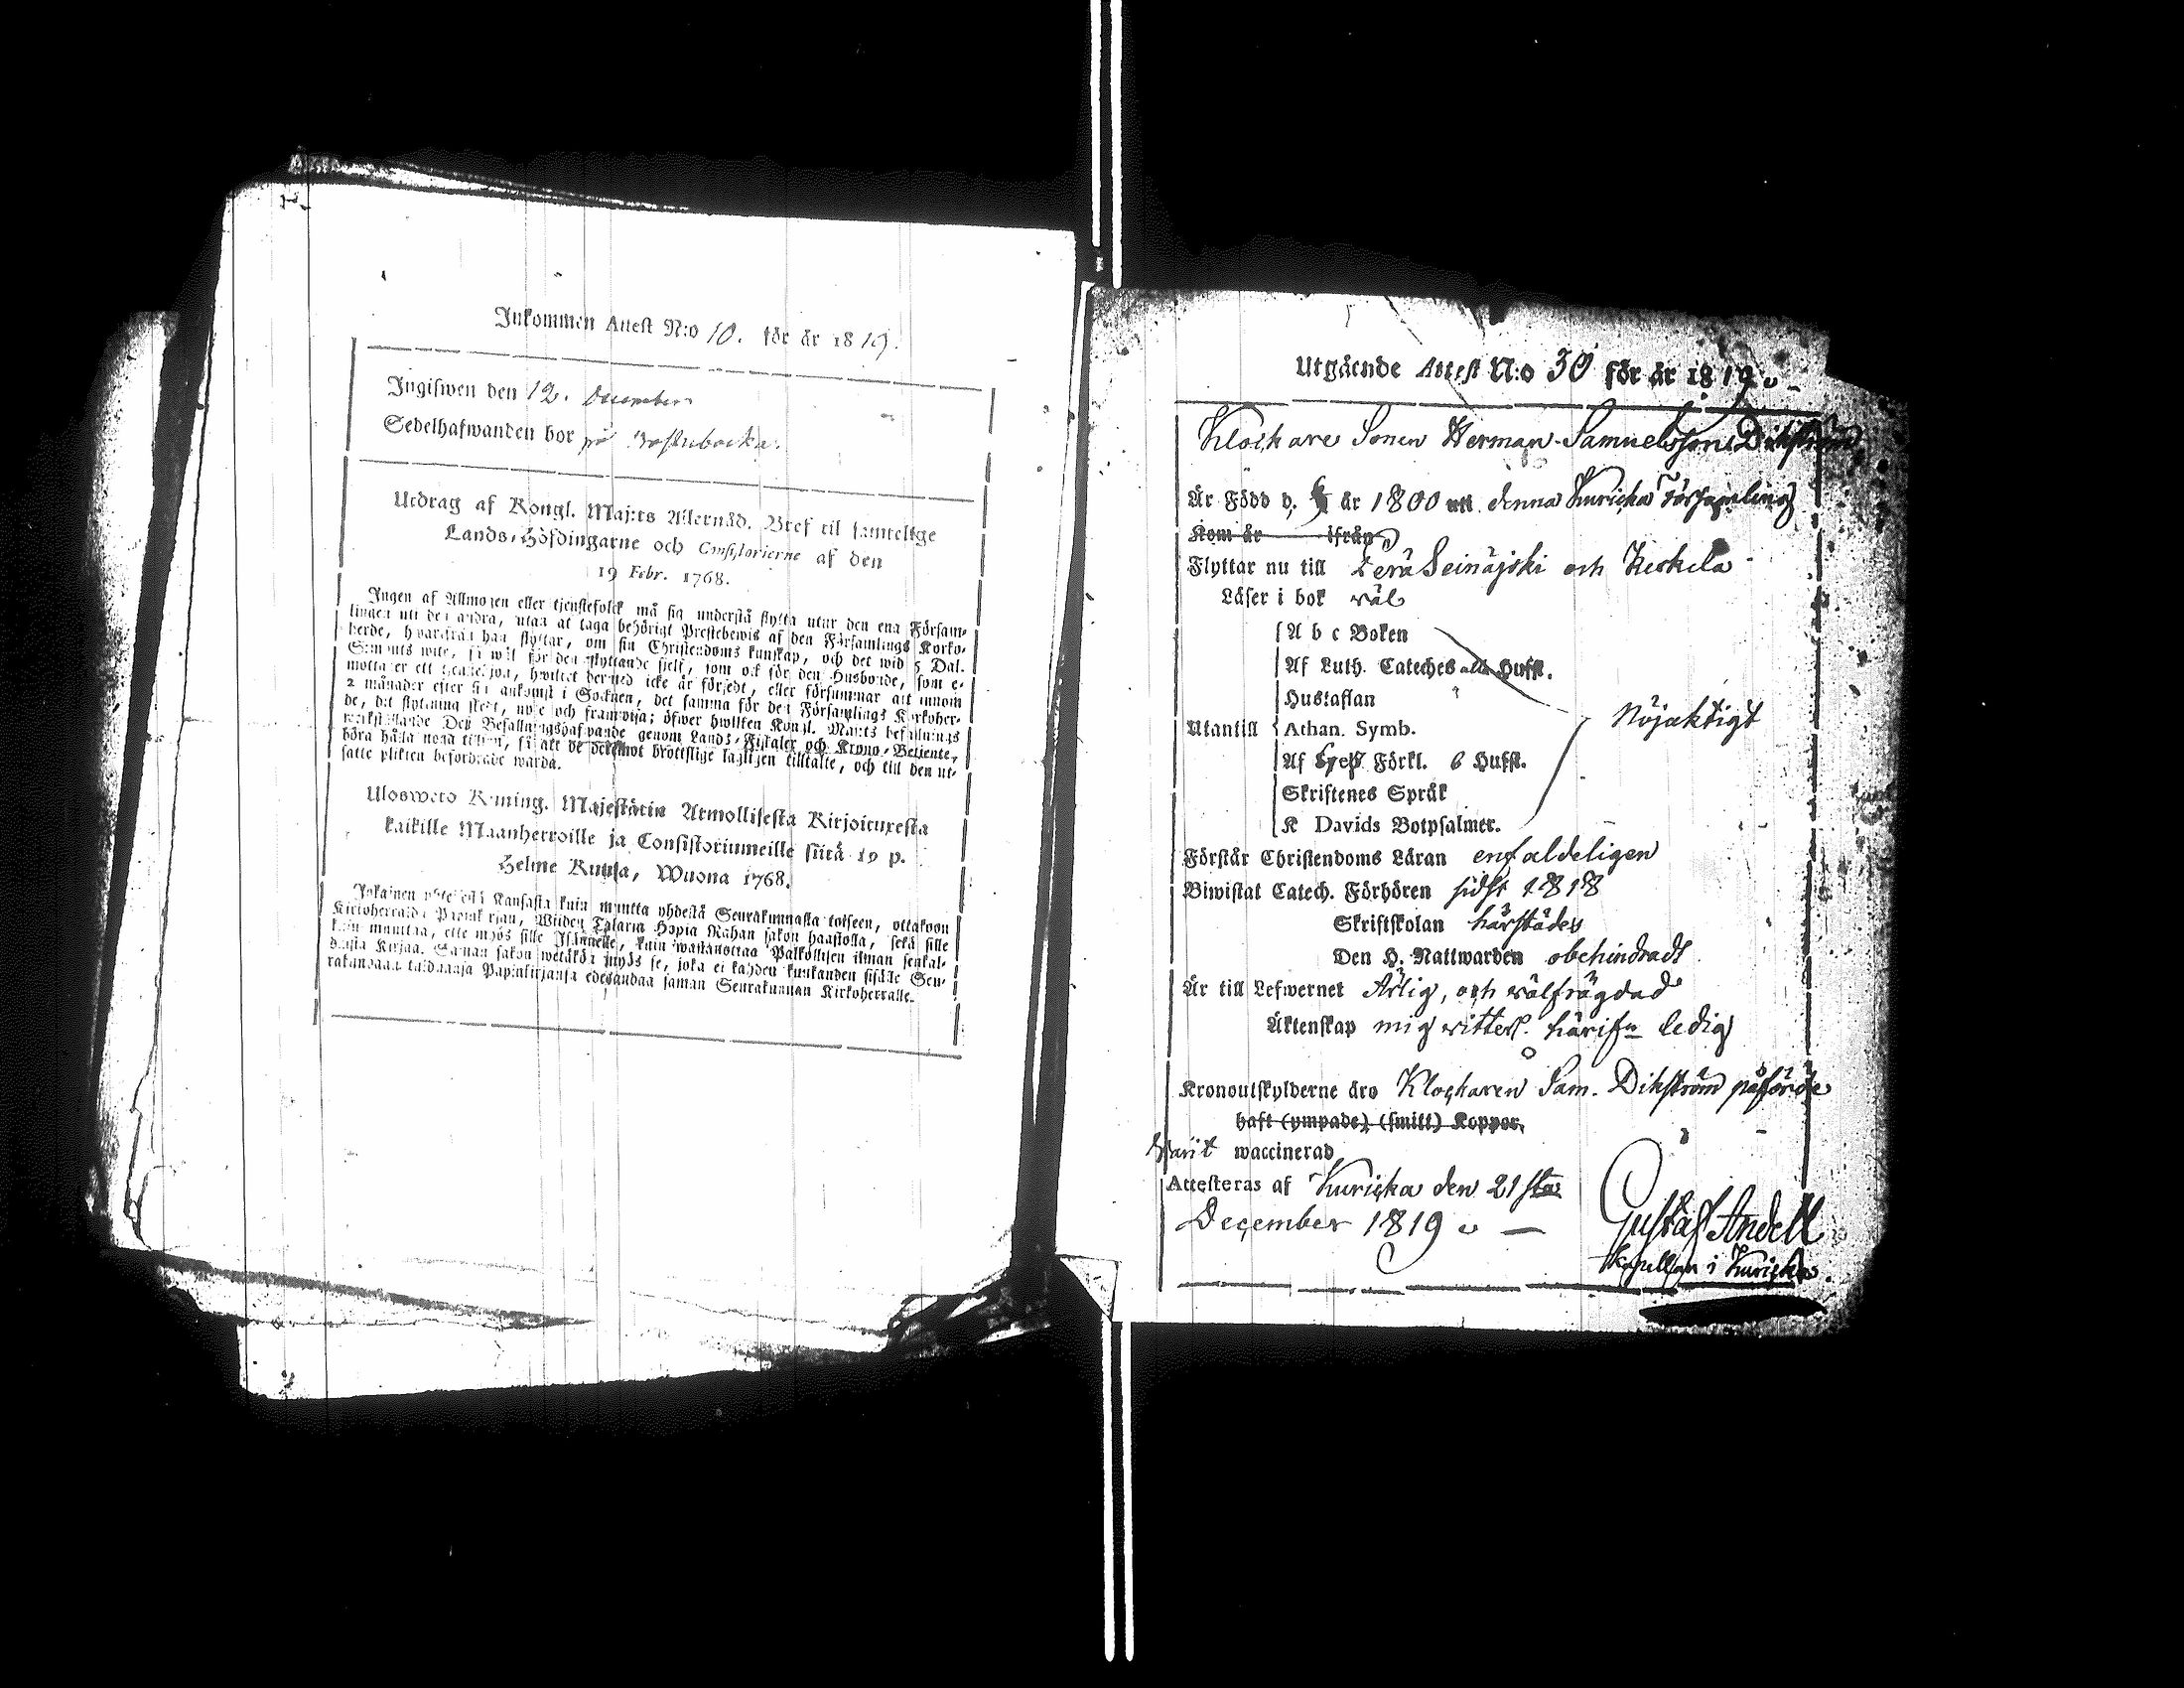 Inkommen Attest N:o 10. för år 1819.
Ingifwen den 12. December
Sedelhafwanden bor på
Utdrag af Kongl. Maj:ts Allernåd. Bref til samtelige
Lands-Höfdingarne och Consistorierne af den
19 Febr. 1768.
Ingen af Allmogen eller tjenstefolck må sig understå flytta utur den ena Försam-
lingen uti den andra, utan at taga behörigt Prestebewis af den Församlings Kyrko-
herde, hwarifrån han flyttar, om sin Christendoms kunskap, och det wid 5 Dal.
Simits wite, så wäl för den flyttande sielf, som ock för den Husbonde, som e-
motta er ett tjenstejon, hwilket dermed icke är försedt, eller försummar att innom
2 månader efter sin ankomst i Socknen, det samma för den Församlings Kyrkoher-
de, dit flyttning skedt, upte och framwisa; öfwer hwilken Kongl. Maj:ts befallnings
werkställande Des Befallningshafwande genom Lands-Fiskaler och Krono-Betjente,
böra hålla noga tilsyn, så att de deremot brottslige lagligen tilltalte, och till den ut-
satte plikten befordrade warda.
Ulosweto Kuning. Majestätin Armollisesta Kirjoituxesta
kaikille Maanherroille ja Consistoriumeille siitä 19 p.
Helme Kuusa, Wuona 1768.
Jokainen yhteisestä Kansasta kuin muutta yhdestä Seurakunnasta toiseen, ottakoon
Kirkoherralda Papink rjan, Wiiden Talarin Hopia Rahan sakon haastolla, sekä sille
kuin muuttaa, ette myös sille Isännelle, kuin wastanottaa Palkollisen ilman senkal-
daista Kirjaa. Saman sakon wetäkön myös se, joka ei kahden kuukauden sisälle Seu-
rakundaan tulduansa Papinkirjansa edesandaa saman Seurakunnan Kirkoherralle.
Utgående Attest N:o 30 för år 1819.
Klockare Sonen Herman Samuelsson Dikström
Är Född d. år 1800 uti denna Kuricka Församling
Kom år ifrån
Flyttar nu till Perä Seinäjoki och Keskela
Läser i bok wäl
A b c Boken
Af Luth. Cateches alla Hufst.
Hustaflan
Utantill Athan. Symb. Nöjaktigt
Af Förkl. 6 Hufst.
Skriftenes Språk
K Davids Botpsalmer.
Förstår Christendoms Läran enfaldeligen
Biwistat Catech. Förhören sidst 1818
Skriftskolan härstädes
Den H. Nattwarden obehindradt
Är till Lefwernet Ärlig, och wälfrägdad
Äktenskap mig witterl. härifrn ledig
Kronoutskylderne äro Klockaren Sam. Dikström påförde
haft (ympade) (smitt) Koppor,
Warit waccinerad
Attesteras af Kuricka den 21sta
December 1819
Gustaf Andell
Kapellan i Kuricka.